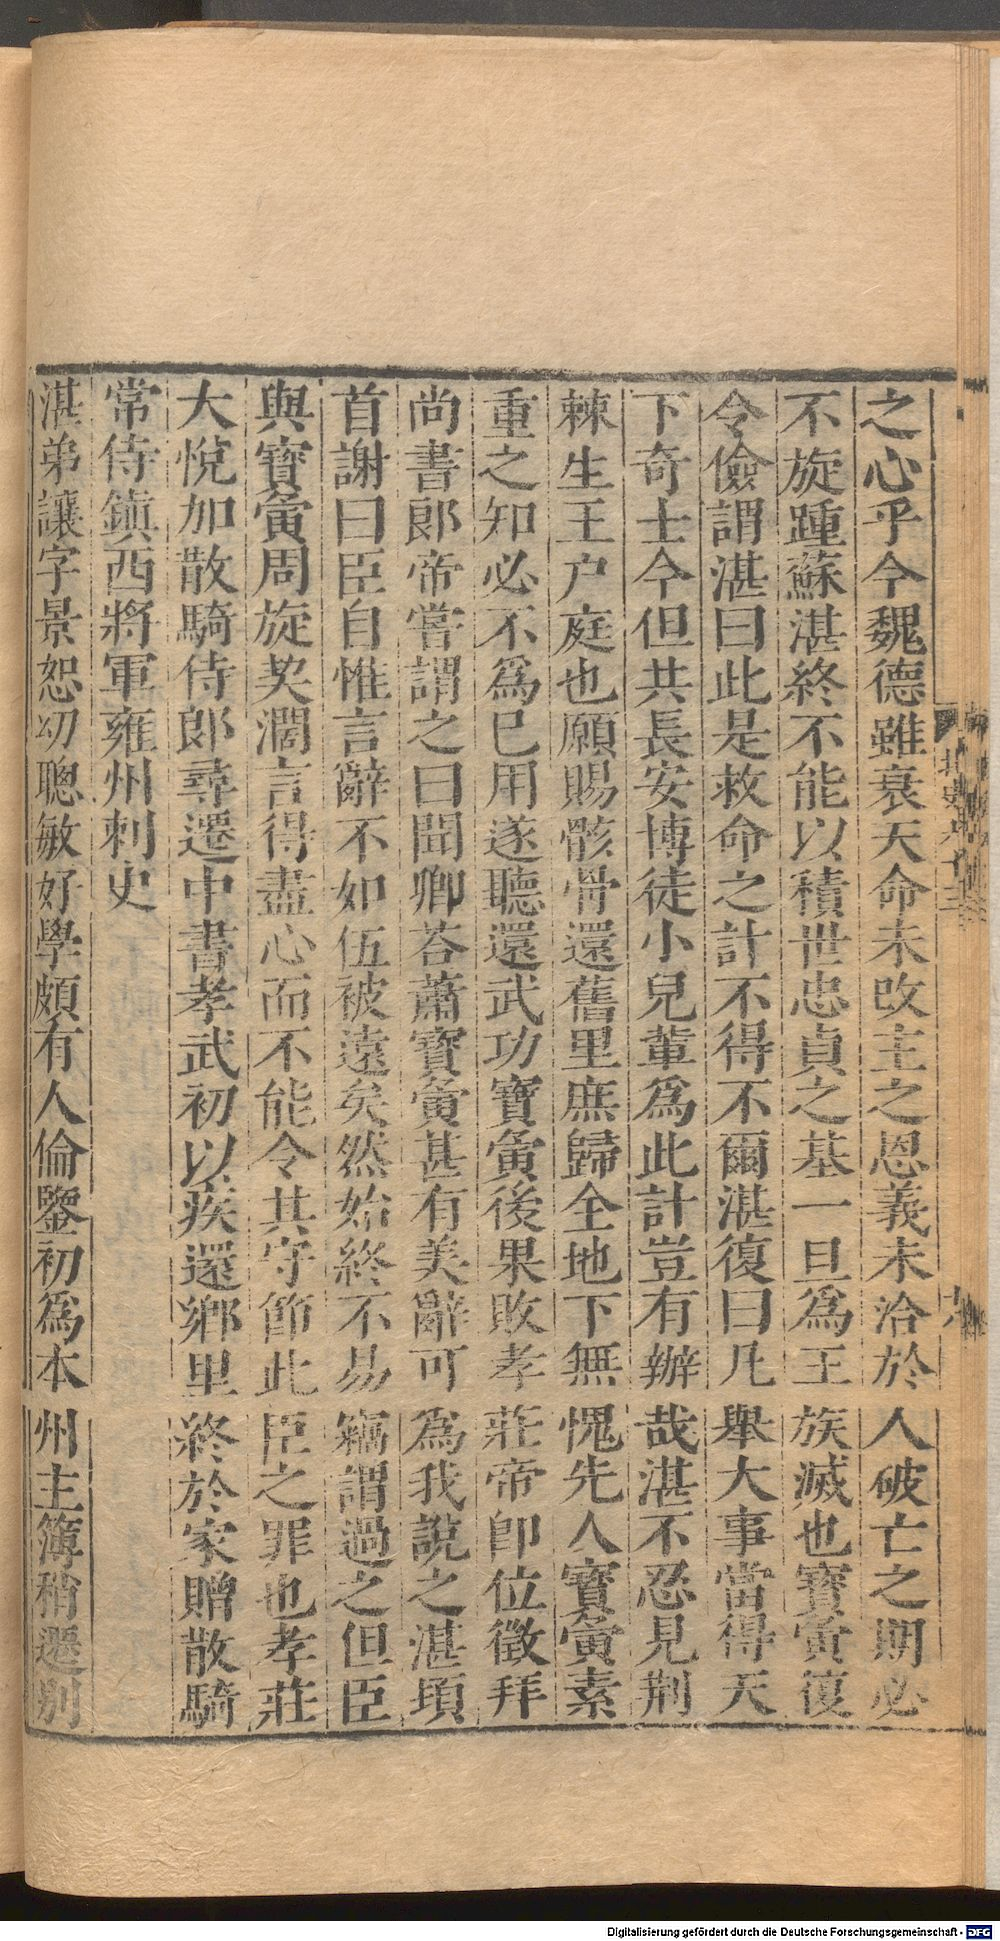 之心乎今魏德雖衰天命未改主之恩義未洽於人破亡之期必
不旋踵蘇湛終不能以積世忠貞之基一旦為王族滅也寶夤復
令儉謂湛曰此是救命之計不得不爾湛復曰凡舉大事當得天
下奇士今但共長安博徒小兒輩為此計豈有辦哉湛不忍見荆
棘生王户庭也願賜骸骨還舊里庶歸全地下無愧先人寶夤素
重之知必不爲巳用遂聽還武功寶夤後果敗孝莊帝卽位徵拜
尚書郎帝嘗謂之曰聞卿荅蕭寶夤甚有美辭可為我說之湛頃
首謝曰臣自惟言辭不如伍被遠矣然始終不易竊謂過之但臣
與寶夤周旋契濶言得盡心而不能令其守節此臣之罪也孝莊
大悅加散騎侍郎尋遷中書孝武初以疾還鄉里終於家贈散騎
常侍鎮西將軍雍州刺史
湛弟讓字景恕㓜聰敏好學頗有人倫鑒初為本州主簿稍遷别